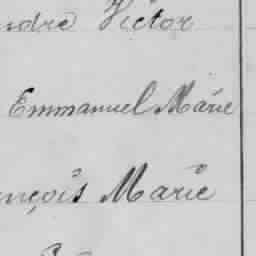 ndre Victor
Emmanuel Marie
nçois Marie